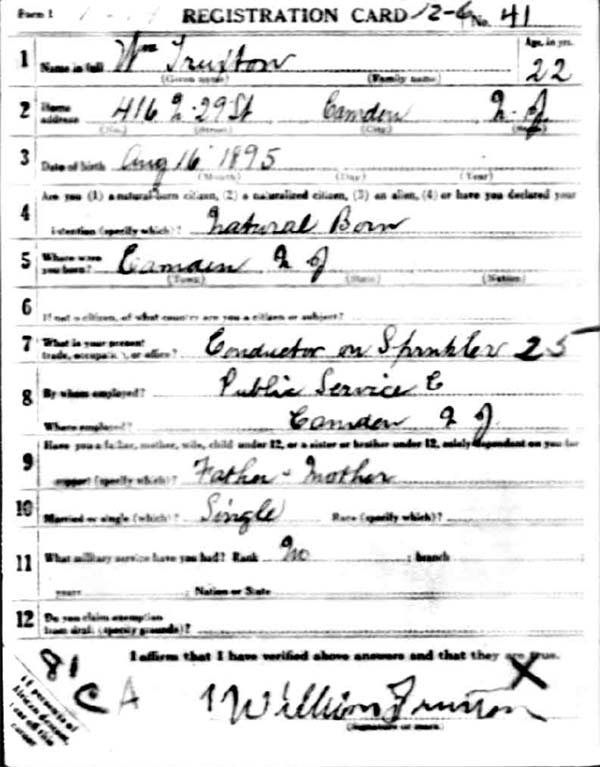 Form 1 REGISTRATION CARD 12-6 No. 41
1 Name in full Wm Truxton Age, in yrs. 22
(Given name) (Family name)
2 Home address 416 N. 29 St Camden N. J
(No.) (Street) (City) (State)
3 Date of birth Aug 16 1895
(Month) (Day) (Year)
4 Are you (1) a natural-born citizen, (2) a naturalized citizen, (3) an alien, (4) or have you declared your
intention (specify which)? Natural Born
5 Where were you born? Camden N J
(Town) (State) (Nation)
6 If not a citizen, of what country are you a citizen or subject?
7 What is your present trade, occupation, or office? Conductor on Sprinkler 25
8 By whom employed? Public Service C
Where employed? Camden N J.
9 Have you a father, mother, wife, child under 12, or a sister or brother under 12, solely dependent on you for
support (specify which)? Father - Mother
10 Married or single (which)? Single Race (specify which)?
11 What military service have you had? Rank No ; branch
years ; Nation or State
12 Do you claim exemption
from draft (specify grounds)?
I affirm that I have verified above answers and that they are true.
81 X
C A William Truxton
(Signature or mark)
If person is of
African descent,
corner